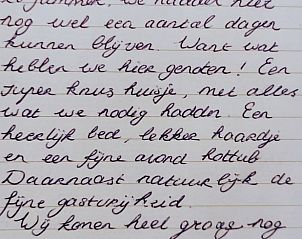 we hadden hier
nog wel een aantal dagen
kunnen blijven. Want wat
hebben we hier genoten! Een
super knus huisje, met alles
wat we nodig hadden. Een
heerlijk bed, lekker haardje
en een fijne avond hottub
Daarnaast natuurlijk de
fijne gastvrijheid.
Wij komen heel graag nog